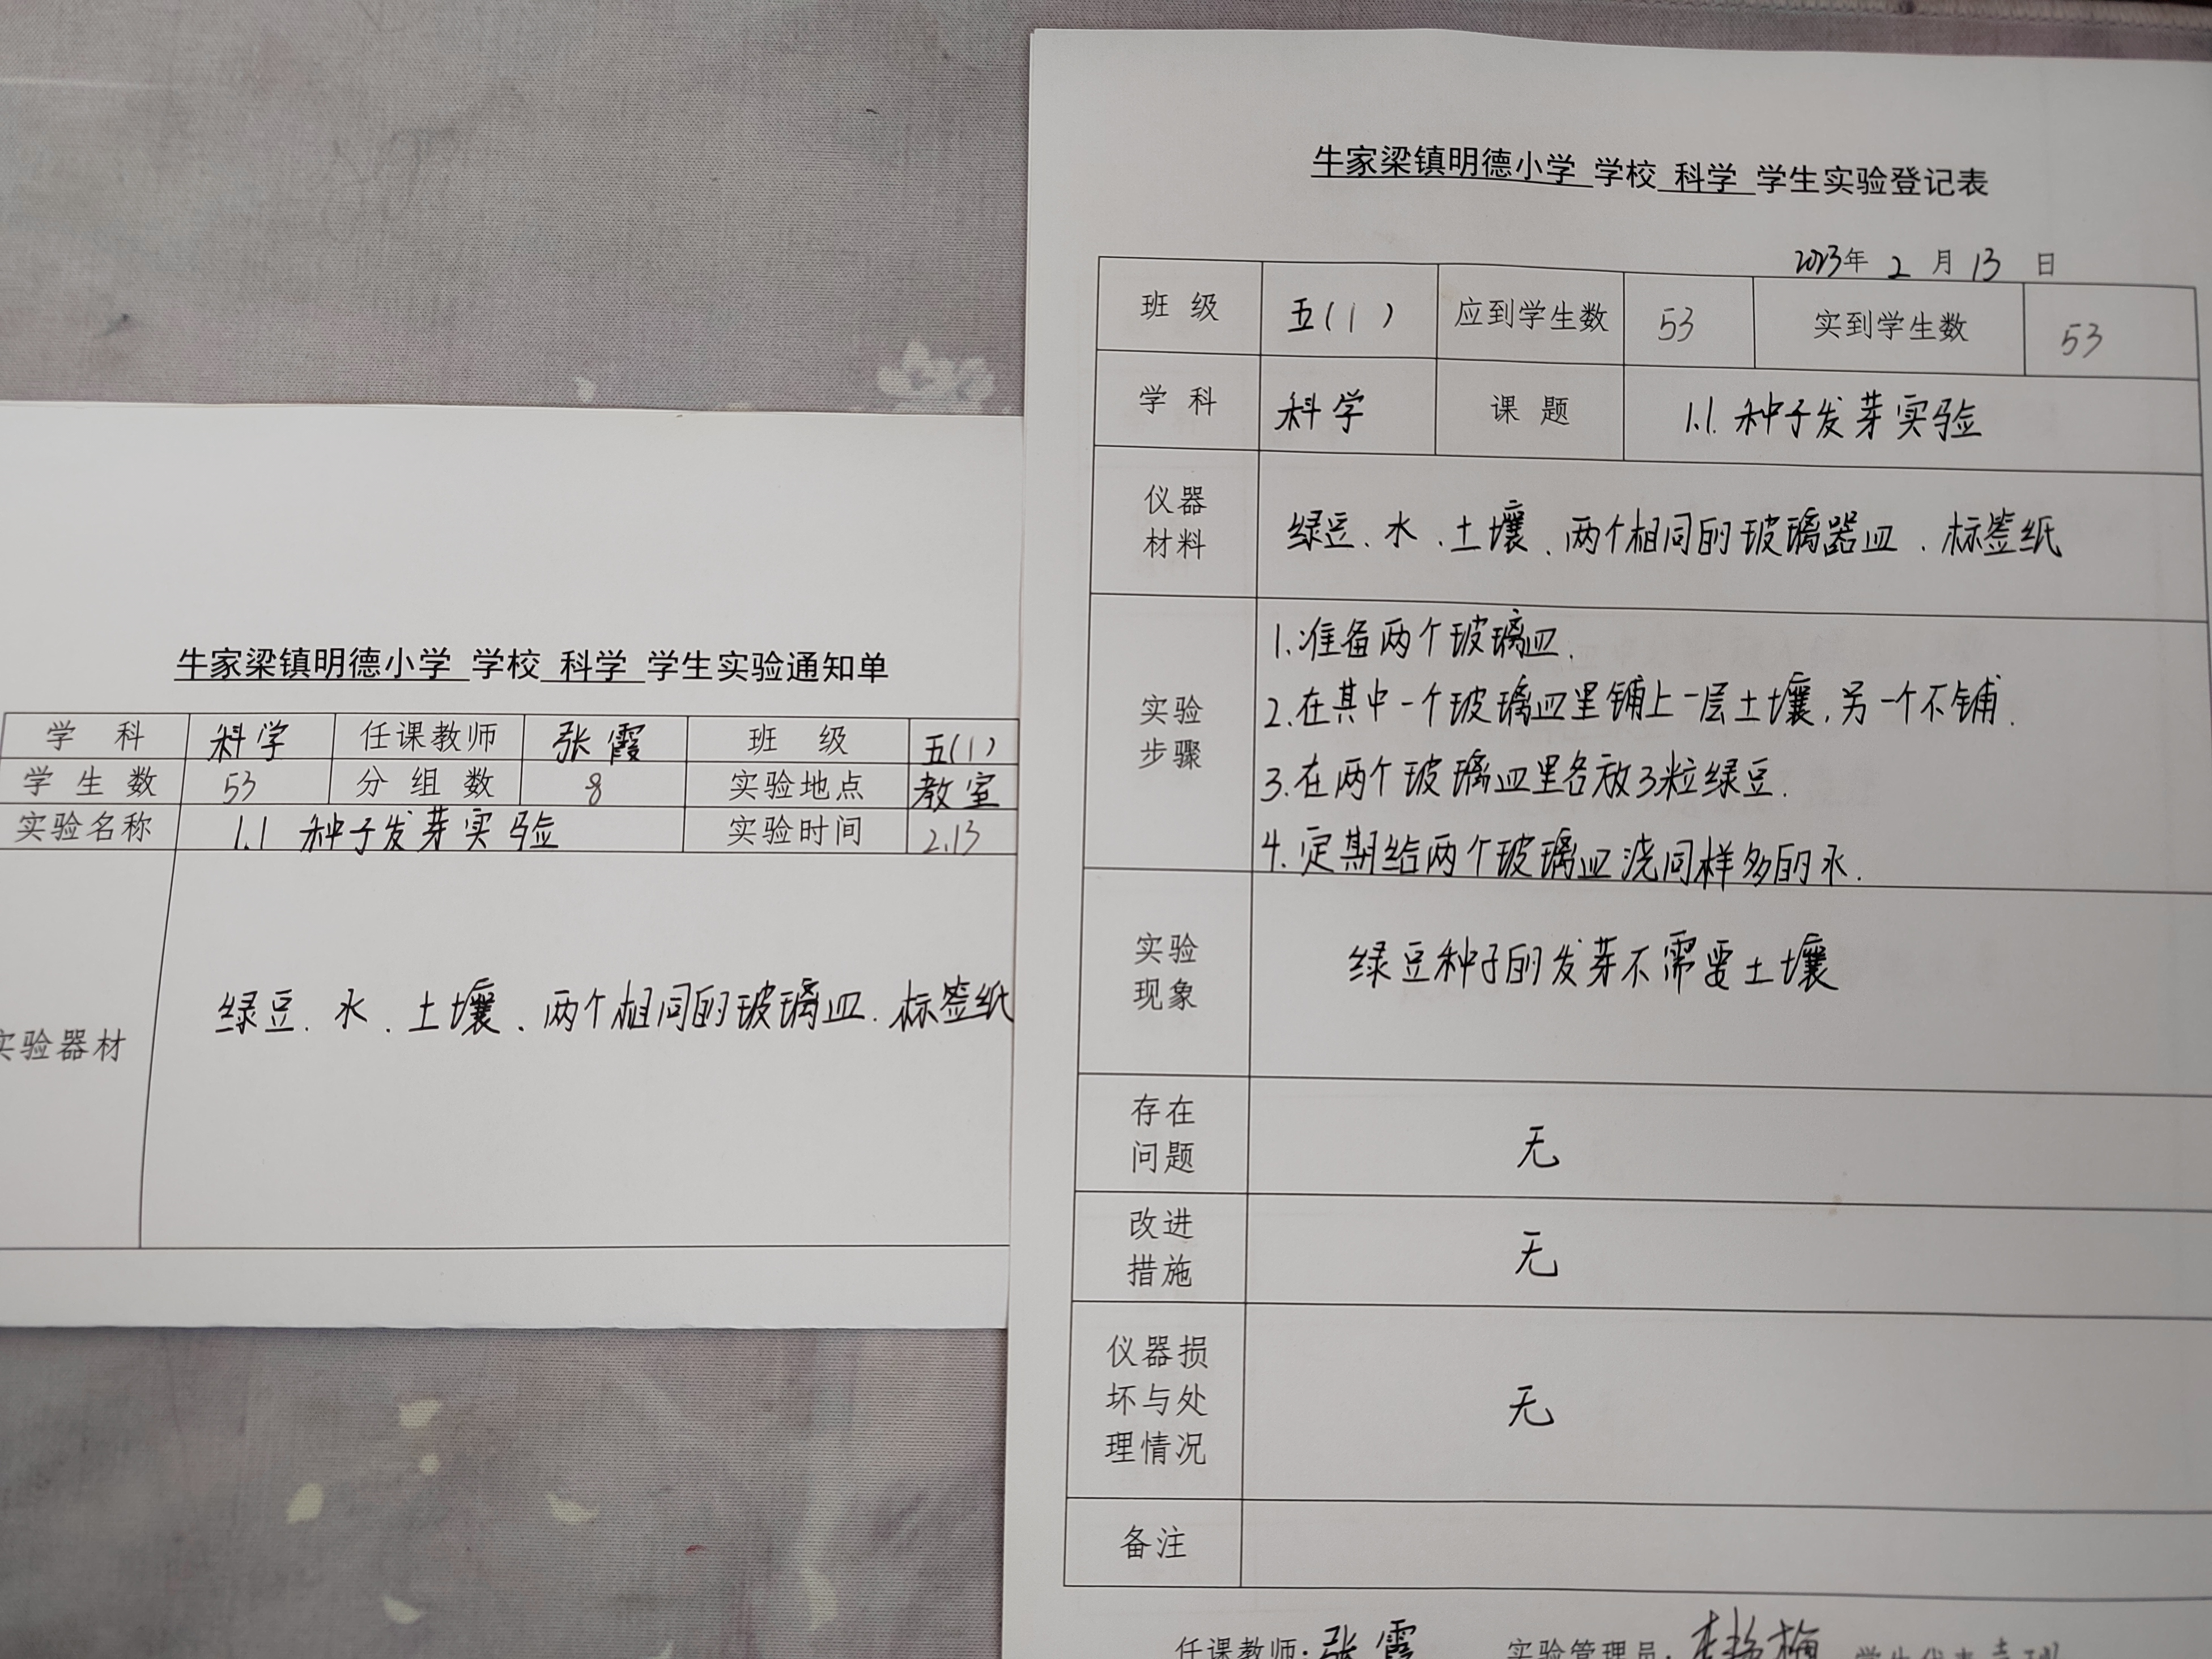 牛家梁镇明德小学 学校 科学 学生实验通知单
学 科 科学 任课教师 张霞 班 级 五(1)
学生数 53 分组数 8 实验地点 教室
实验名称 1.1 种子发芽实验 实验时间 2.13
实验器材 绿豆、水、土壤、两个相同的玻璃皿、标签纸
牛家梁镇明德小学 学校 科学 学生实验登记表
2023年 2 月 13 日
班 级 五(1) 应到学生数 53 实到学生数 53
学 科 科学 课 题 1.1. 种子发芽实验
仪器
材料
绿豆、水、土壤、两个相同的玻璃器皿、标签纸
实验
步骤
1.准备两个玻璃皿.
2.在其中一个玻璃皿里铺上一层土壤,另一个不铺.
3.在两个玻璃皿里各放3粒绿豆.
4.定期给两个玻璃皿浇同样多的水.
实验
现象
绿豆种子的发芽不需要土壤
存在
问题
无
改进
措施
无
仪器损
坏与处
理情况
无
备注
任课教师:张霞 实验管理员: